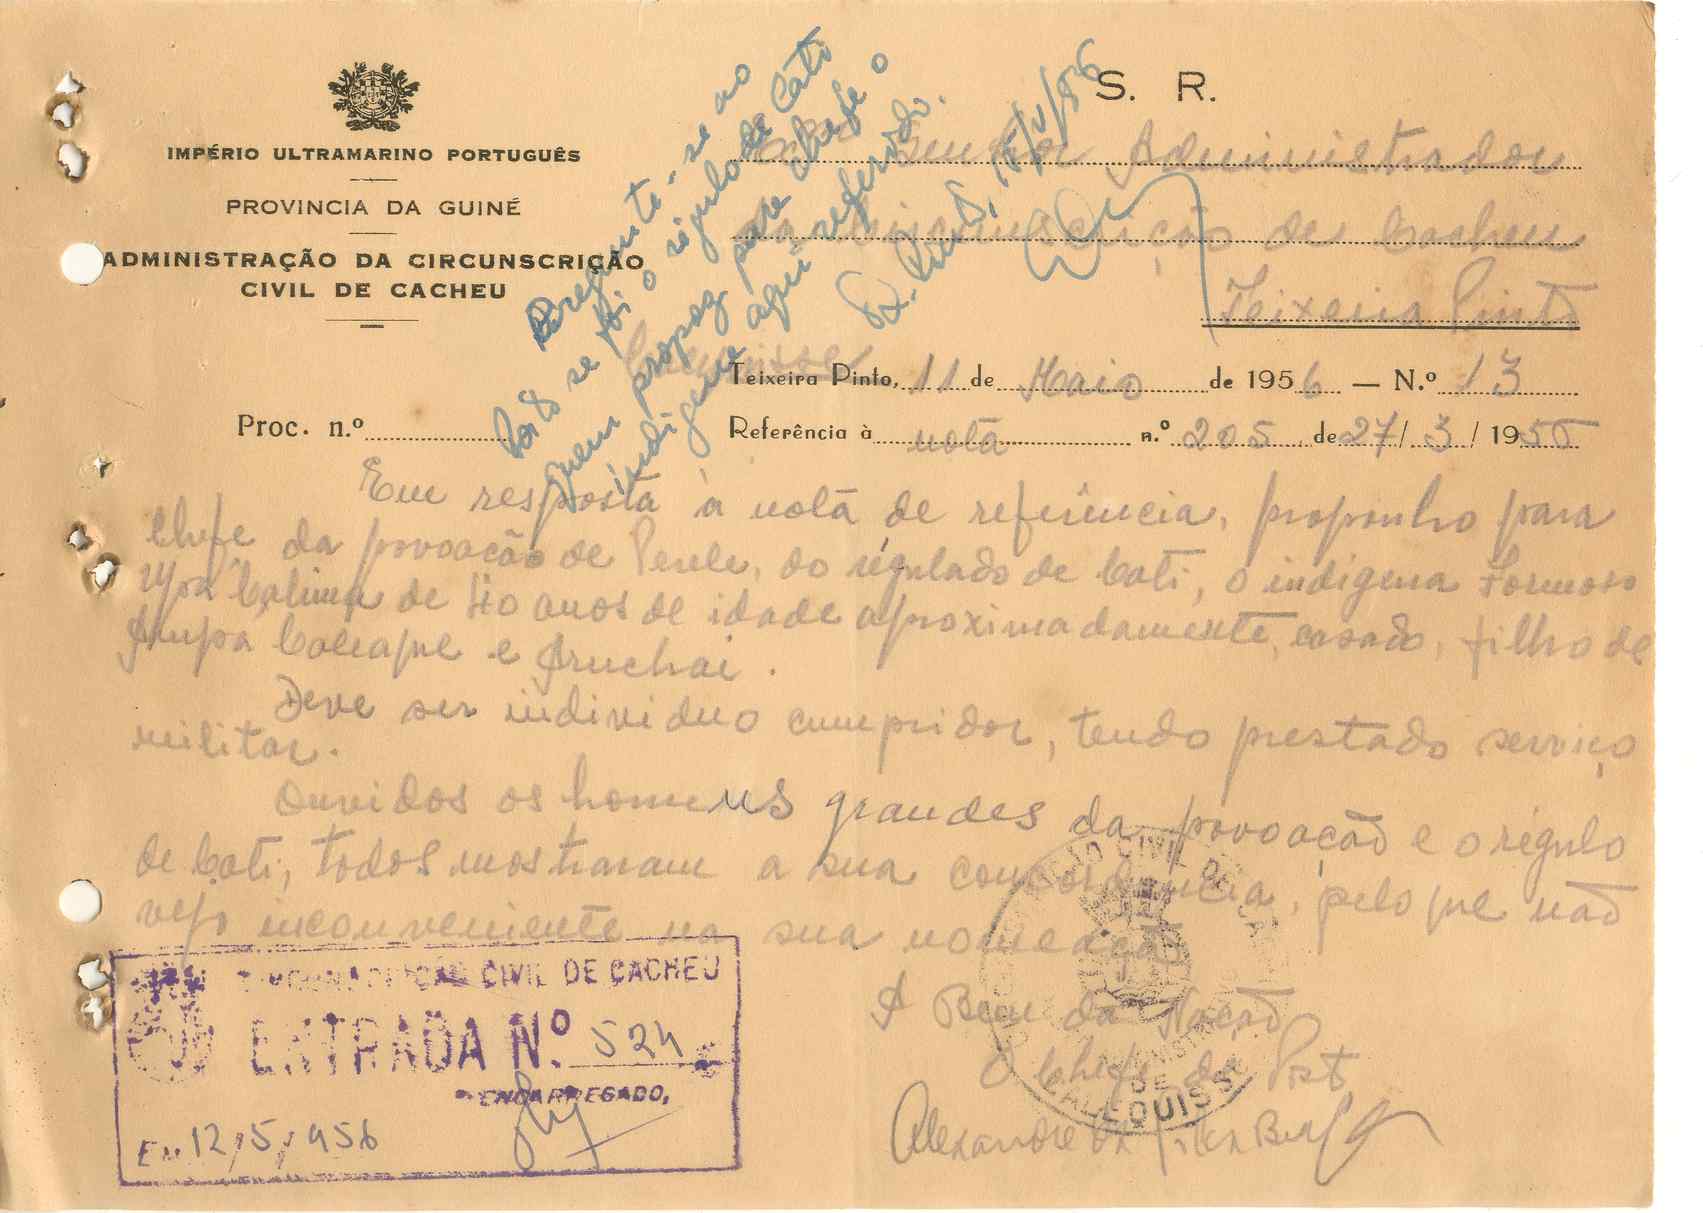 S. R.
IMPÉRIO ULTRAMARINO PORTUGUÊS
PROVINCIA DA GUINÉ
ADMINISTRAÇÃO DA CIRCUNSCRIÇÃO
CIVIL DE CACHEU
Senhor Administrador
da Circunscrição de Cacheu
Teixeira Pinto
Pergunte-se ao
se foi o régulo de Cati
quem propoz para chefe o
indigena aqui referido.
T. Pinto, 15/V/956
Teixeira Pinto, 11 de Maio de 1956 — N.º 13
Proc. n.º
Referência à nota n.º 205 de 27/3/1956
Em resposta à nota de referência, proponho para
Chefe da povoação de Penle, do régulado de Cati, o indigena Formoso
de 40 anos de idade aproximadamente, casado, filho de
e
Deve ser individuo cumpridor, tendo prestado serviço
militar.
Ouvidos os homens grandes da povoação e o régulo
de Cati, todos mostraram a sua concordancia, pelo que não
vejo inconveniente na sua nomeação
A Bem da Nação
O Chefe de Posto
Alexandre
CIRCUNSCRIÇÃO CIVIL DE CACHEU
ENTRADA N.º 524
O ENCARREGADO,
Em 12/5/956
CIRCUNSCRIÇÃO CIVIL DE CACHEU
DE
CALEQUISSE